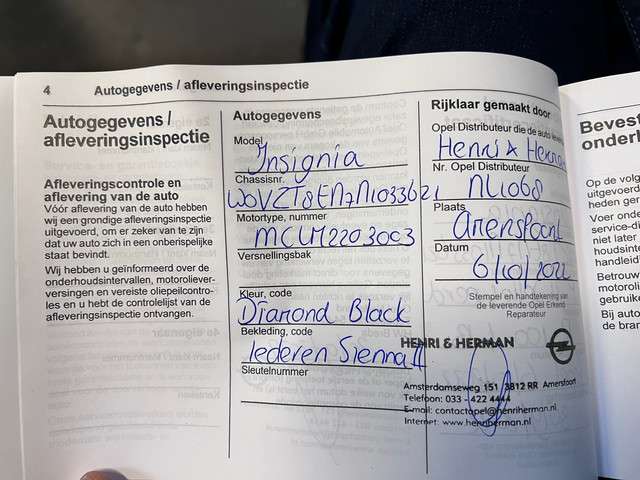 4 Autogegevens / afleveringsinspectie
Autogegevens /
afleveringsinspectie
Afleveringscontrole en
aflevering van de auto
Vóór aflevering van de auto hebben
wij een grondige afleveringsinspectie
uitgevoerd, om er zeker van te zijn
dat uw auto zich in een onberispelijke
staat bevindt.
Wij hebben u geïnformeerd over de
onderhoudsintervallen, motoroliever-
versingen en vereiste oliepeilcontro-
les en u hebt de controlelijst van de
afleveringsinspectie ontvangen.
Autogegevens
Model
Insignia
Chassisnr.
Motortype, nummer
MCLM2203003
Versnellingsbak
Kleur, code
Diamond Black
Bekleding, code
lederen Sienna II
Sleutelnummer
Rijklaar gemaakt door
Opel Distributeur die de auto
Henri & 
Nr. Opel Distributeur
NL1068
Plaats
Amersfoort
Datum
Stempel en handtekening van
de leverende Opel Erkend
Reparateur
HENRI & HERMAN
Amsterdamseweg 151 3812 RR Amersfoort
Telefoon: 033 - 422 4444
E-mail: contactopel@henriherman.nl
Internet: www.henriherman.nl
Bevest
onderh
Op de volg
uitgevoerd
heden ger
Voor onde
service-di
niet later
houdsinte
handleidi
Betrouw
motoroli
gebruike
Bij auto
de bran